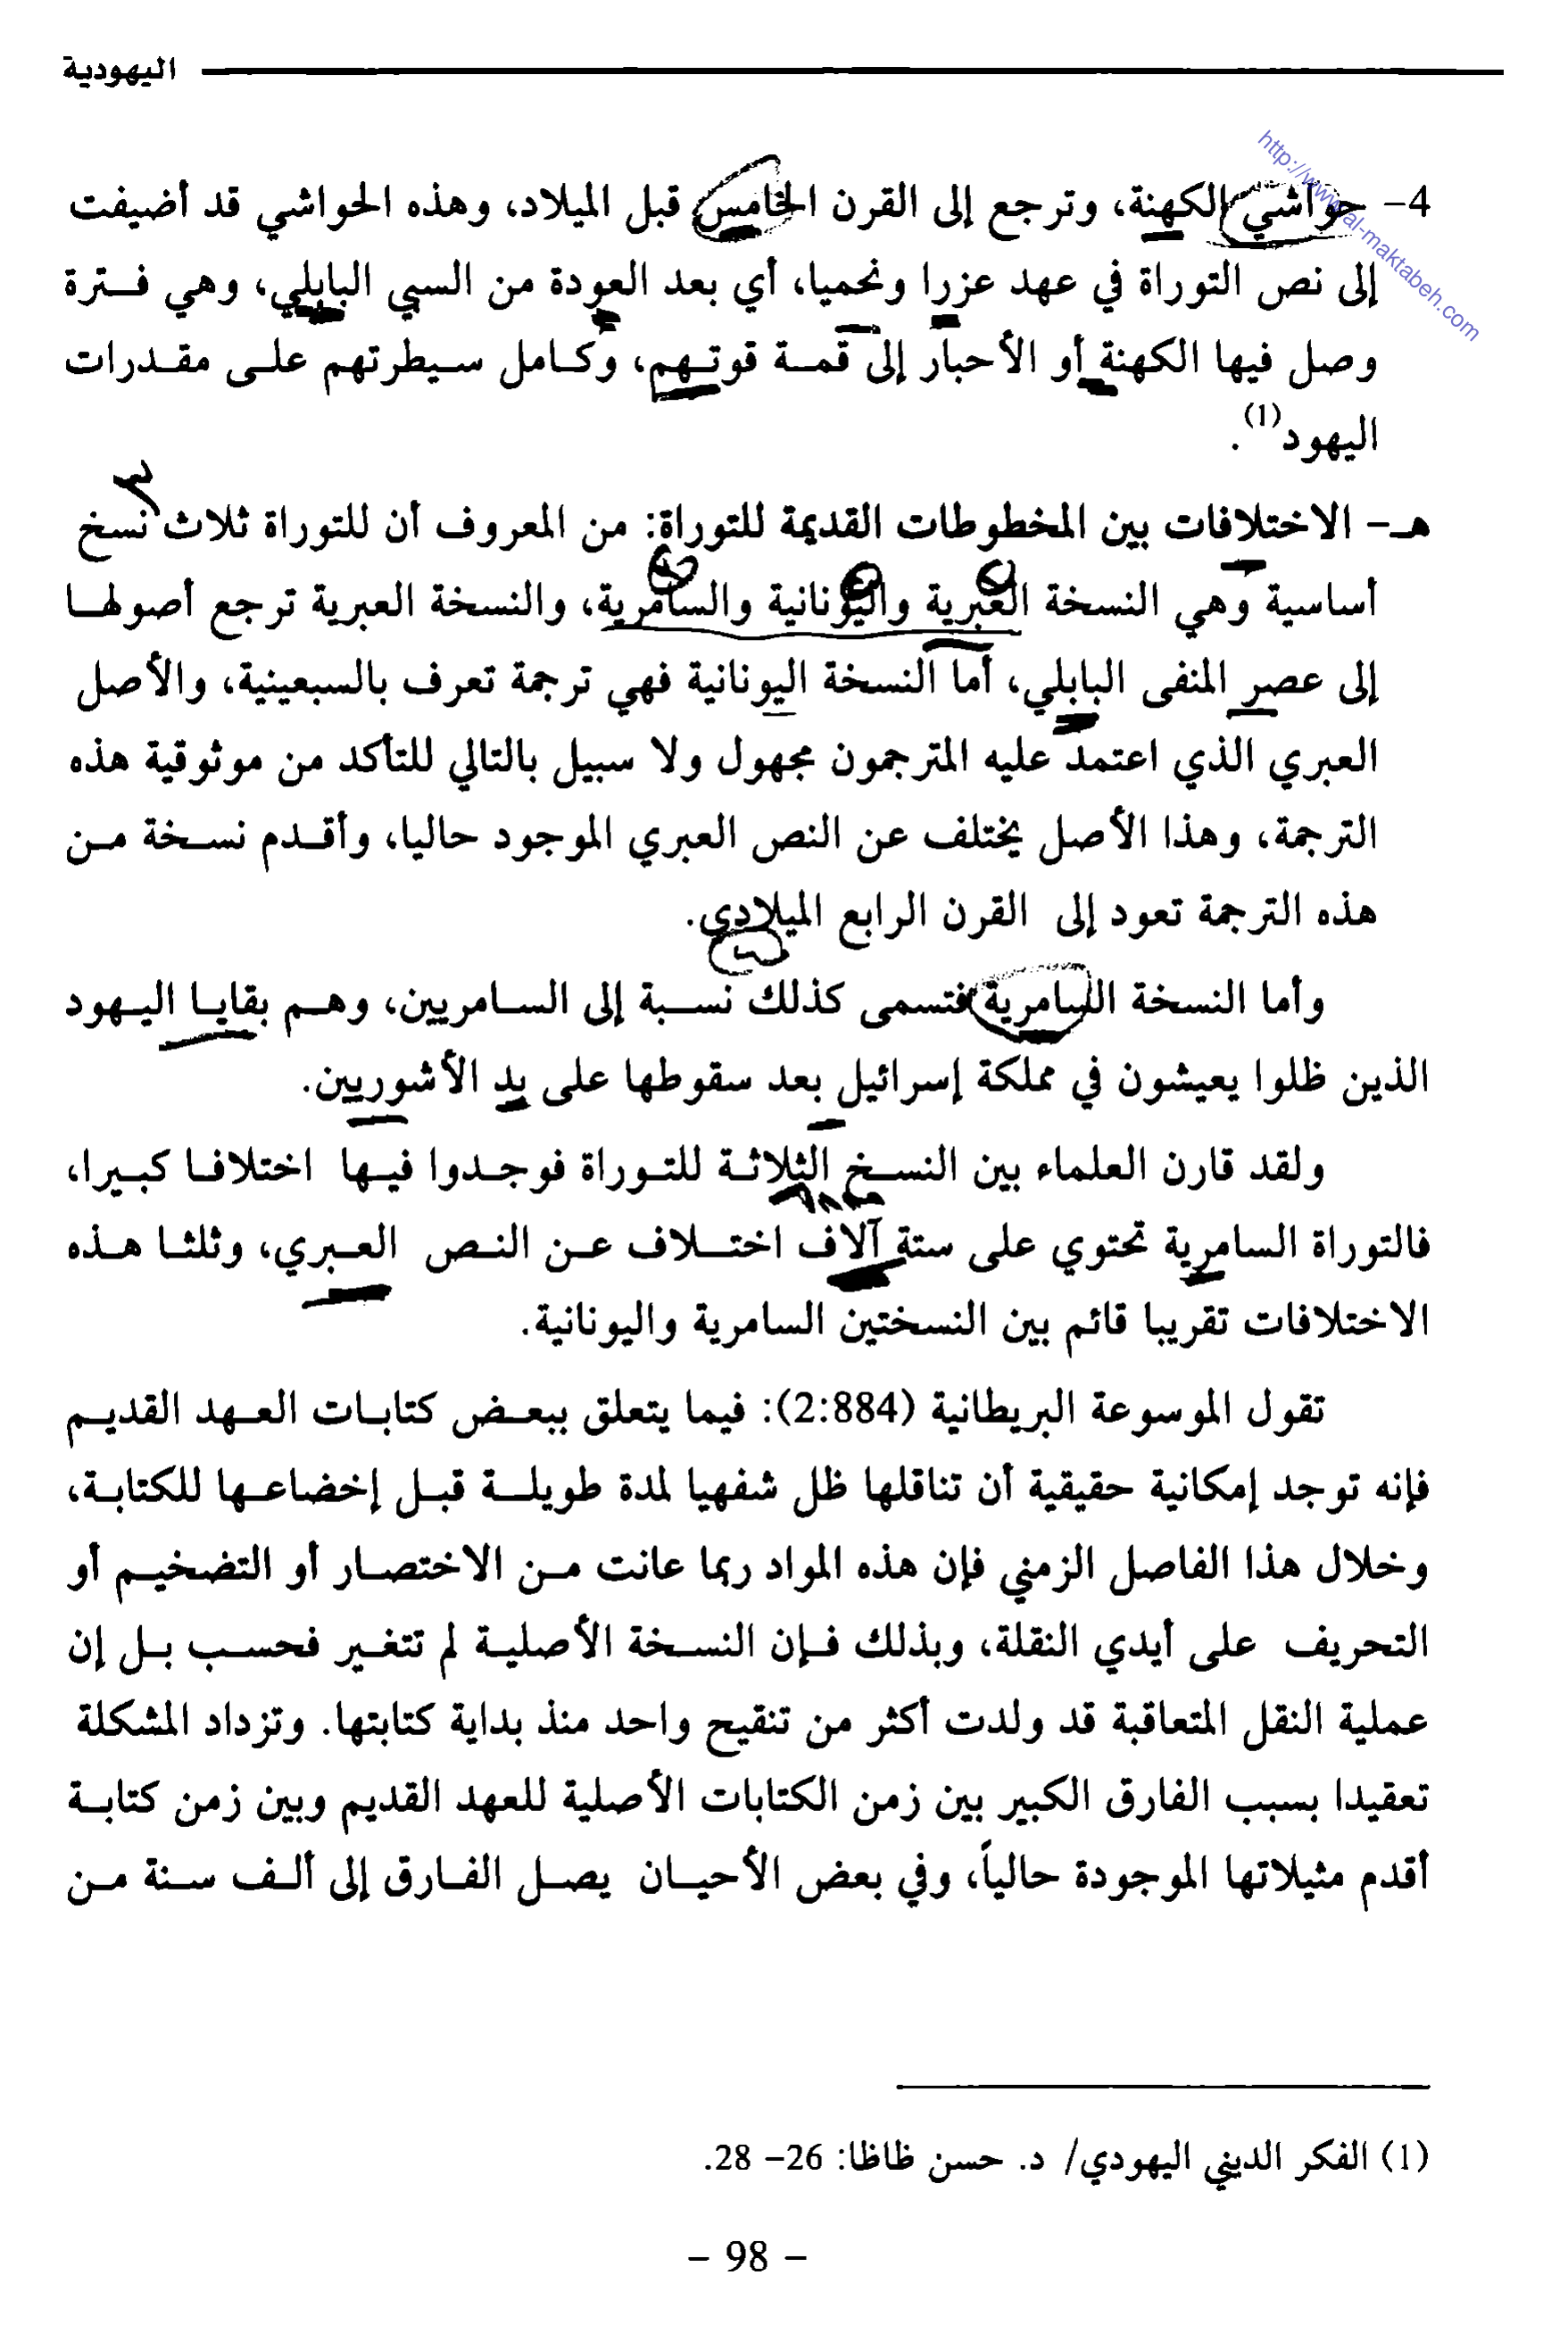 اليهودية
http://www.al-maktabeh.com
4- حواشي الكهنة، وترجع إلى القرن الخامس قبل الميلاد، وهذه الحواشي قد أضيفت
إلى نص التوراة في عهد عزرا ونحميا، أي بعد العودة من السبي البابلي، وهي فترة
وصل فيها الكهنة أو الأحبار إلى قمة قوتهم، وكامل سيطرتهم على مقدرات
اليهود(1).
هـ- الاختلافات بين المخطوطات القديمة للتوراة: من المعروف أن للتوراة ثلاث نسخ
أساسية وهي النسخة العبرية واليونانية والسامرية، والنسخة العبرية ترجع أصولها
إلى عصر المنفى البابلي، أما النسخة اليونانية فهي ترجمة تعرف بالسبعينية، والأصل
العبري الذي اعتمد عليه المترجمون مجهول ولا سبيل بالتالي للتأكد من موثوقية هذه
الترجمة، وهذا الأصل يختلف عن النص العبري الموجود حاليا، وأقدم نسخة من
هذه الترجمة تعود إلى القرن الرابع الميلادي.
وأما النسخة السامرية فتسمى كذلك نسبة إلى السامريين، وهم بقايا اليهود
الذين ظلوا يعيشون في مملكة إسرائيل بعد سقوطها على يد الأشوريين.
ولقد قارن العلماء بين النسخ الثلاثة للتوراة فوجدوا فيها اختلافا كبيرا،
فالتوراة السامرية تحتوي على ستة آلاف اختلاف عن النص العبري، وثلثا هذه
الاختلافات تقريبا قائم بين النسختين السامرية واليونانية.
تقول الموسوعة البريطانية (2:884): فيما يتعلق ببعض كتابات العهد القديم
فإنه توجد إمكانية حقيقية أن تناقلها ظل شفهيا لمدة طويلة قبل إخضاعها للكتابة،
وخلال هذا الفاصل الزمني فإن هذه المواد ربما عانت من الاختصار أو التضخيم أو
التحريف على أيدي النقلة، وبذلك فإن النسخة الأصلية لم تتغير فحسب بل إن
عملية النقل المتعاقبة قد ولدت أكثر من تنقيح واحد منذ بداية كتابتها. وتزداد المشكلة
تعقيدا بسبب الفارق الكبير بين زمن الكتابات الأصلية للعهد القديم وبين زمن كتابة
أقدم مثيلاتها الموجودة حالياً، وفي بعض الأحيان يصل الفارق إلى ألف سنة من
(1) الفكر الديني اليهودي/ د. حسن ظاظا: 26- 28.
- 98 -